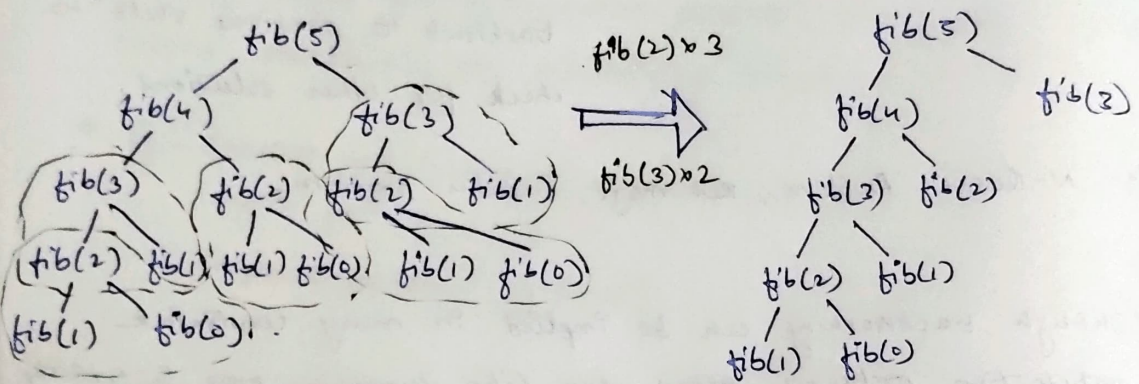 fib(5)
fib(4) fib(3)
fib(3) fib(2) fib(2) fib(1)
fib(2) fib(1) fib(1) fib(0) fib(1) fib(0)
fib(1) fib(0)
fib(2) x 3
fib(3) x 2
fib(5)
fib(4) fib(3)
fib(3) fib(2)
fib(2) fib(1)
fib(1) fib(0)